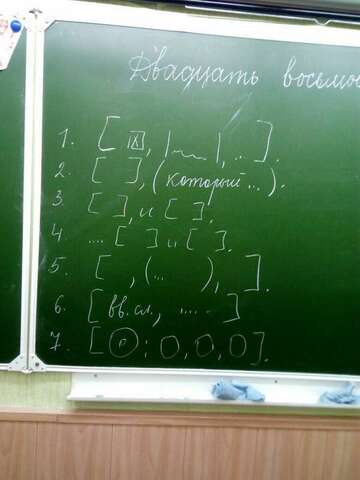 Двадцать восьмое
1. [ х , |﹏|, ...].
2. [ ], (который ...).
3. [ ], и [ ].
4. .... [ ] и [ ].
5. [ , (... ), ].
6. [вв.сл., .... ]
7. [ о : О, О, О].